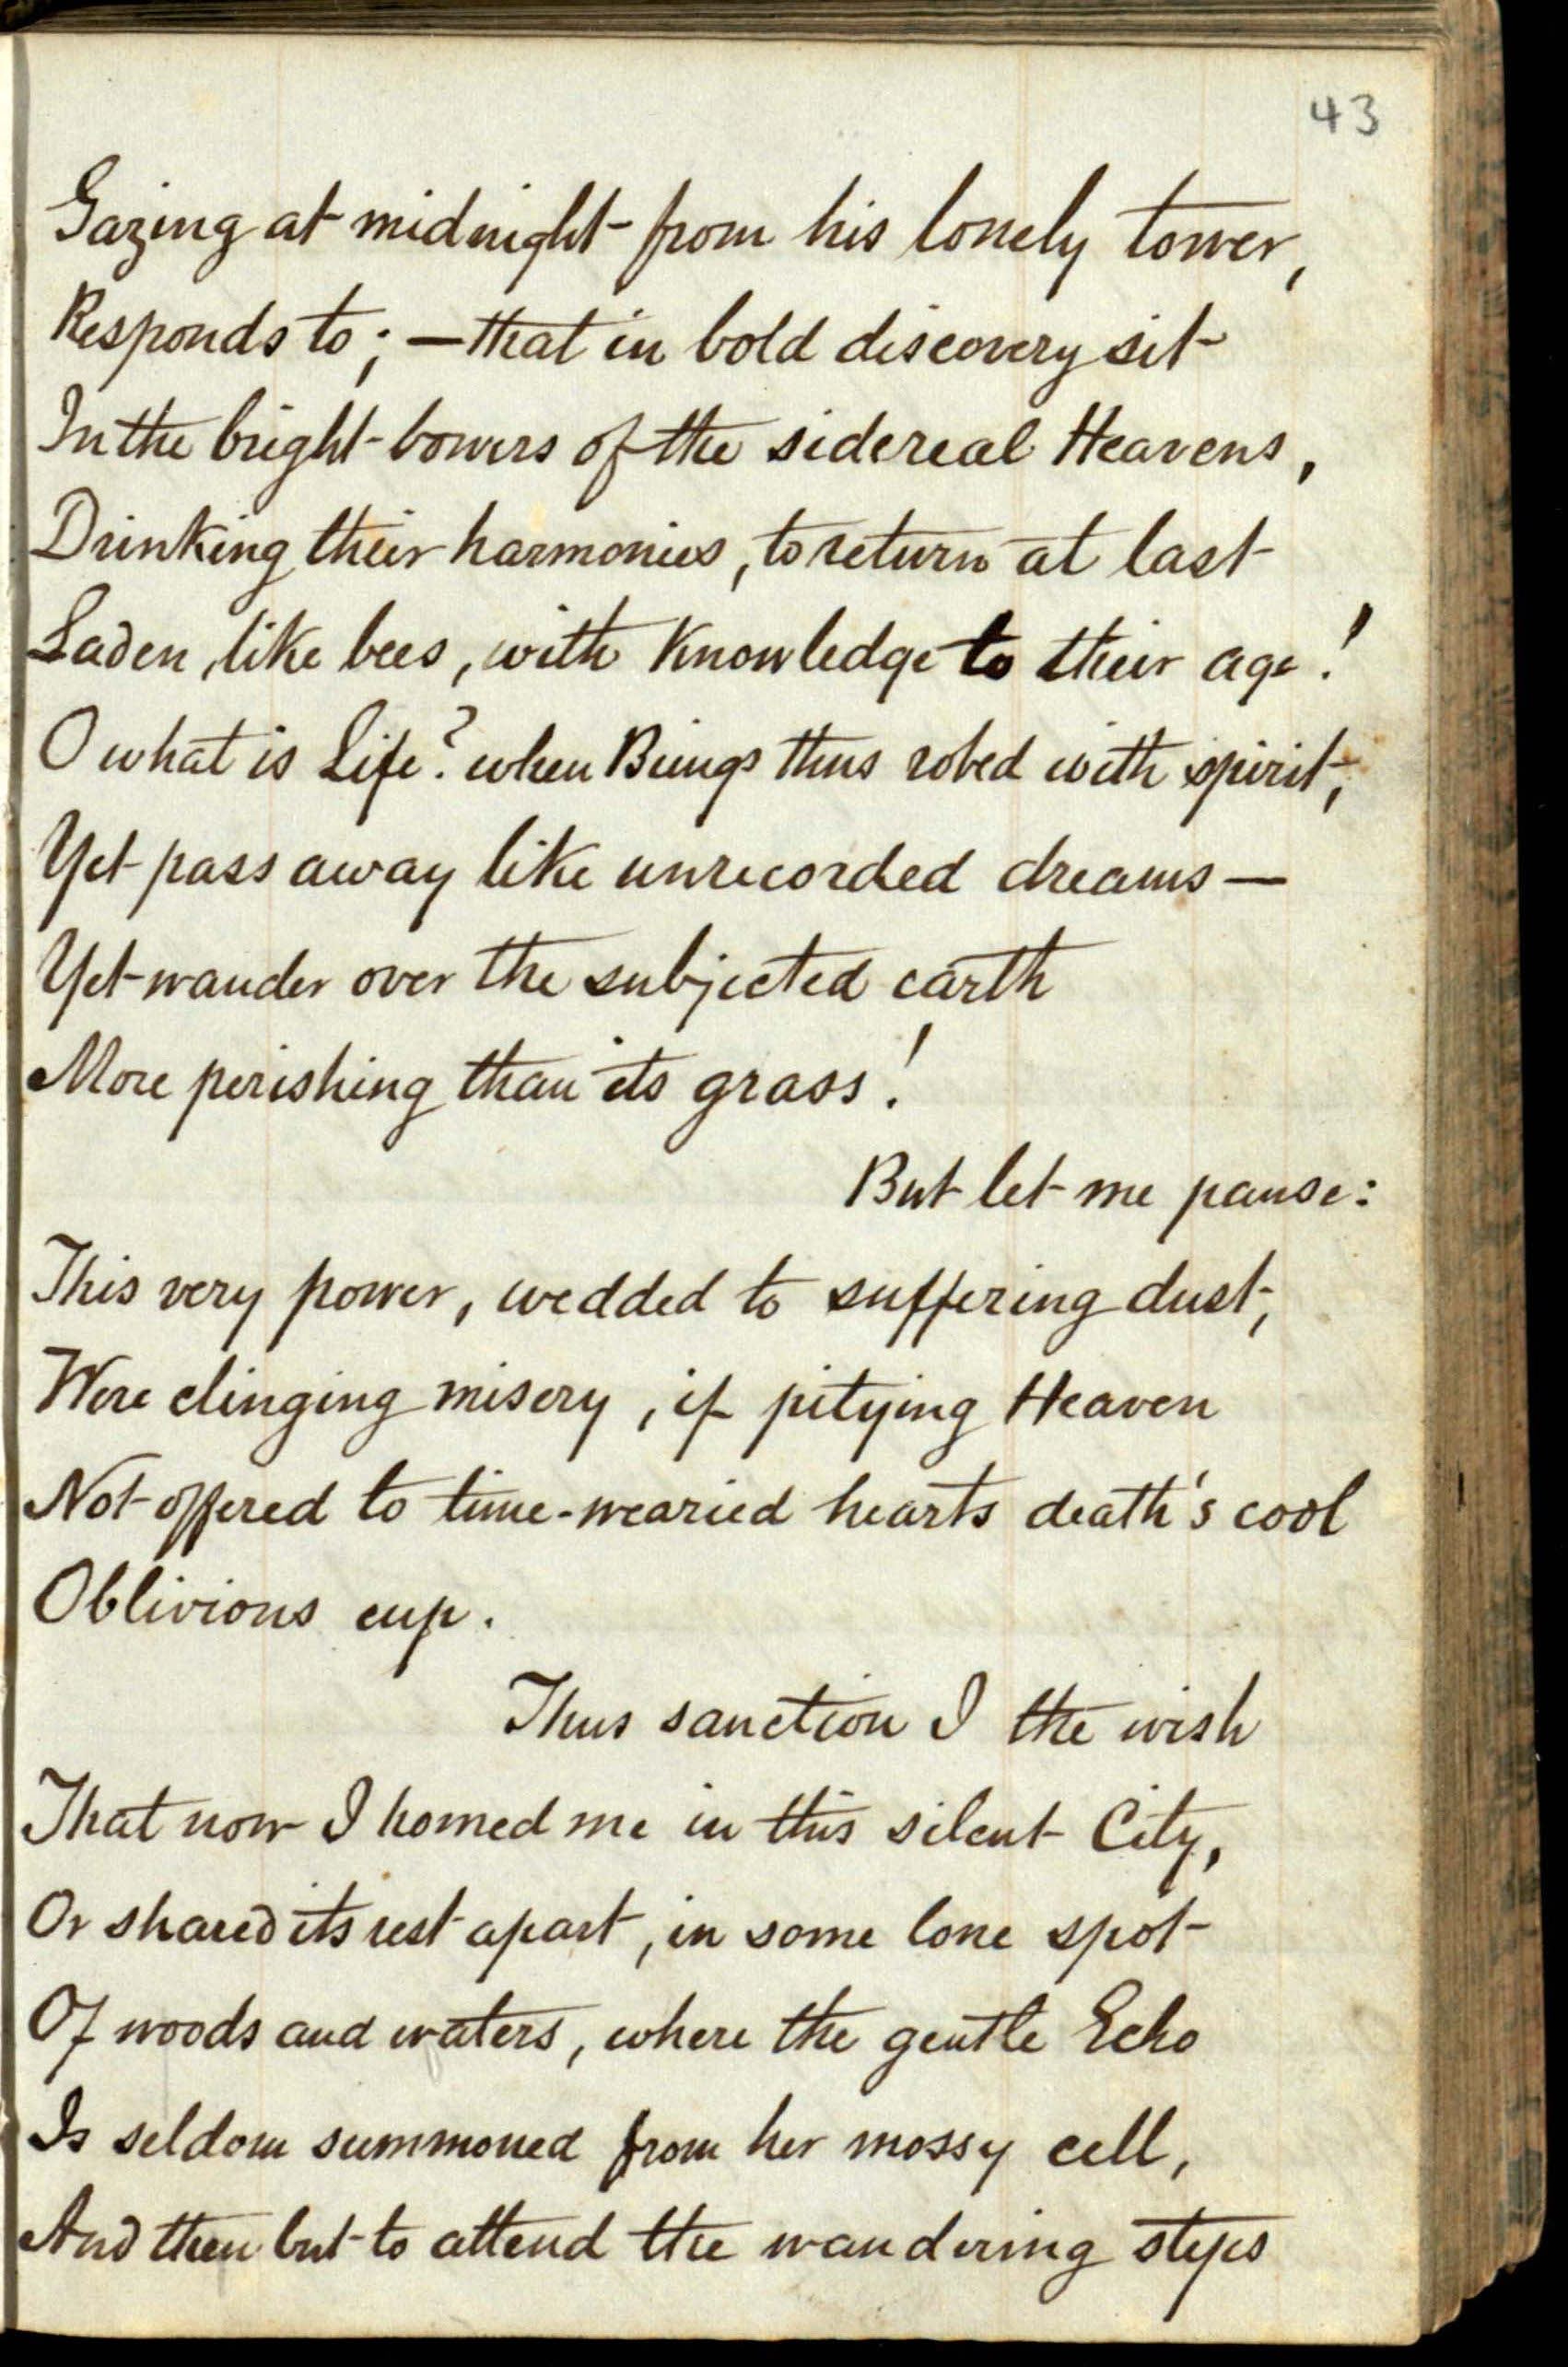 43
Gazing at midnight from his lonely tower,
Responds to; — that in bold discovery sit
In the bright bowers of the sidereal Heavens,
Drinking their harmonies, to return at last
Laden, like bees, with knowledge to their age!
O what is Life? when Beings thus robed with spirit,
Yet pass away like unrecorded dreams —
Yet wander over the subjected earth
More perishing than its grass!
But let me pause:
This very power, wedded to suffering dust,
Were clinging misery, if pitying Heaven
Not offered to time-wearied hearts death's cool
Oblivious cup.
Thus sanction I the wish
That now I homed me in this silent City,
Or shared its rest apart, in some lone spot
Of woods and waters, where the gentle Echo
Is seldom summoned from her mossy cell,
And then but to attend the wandering steps